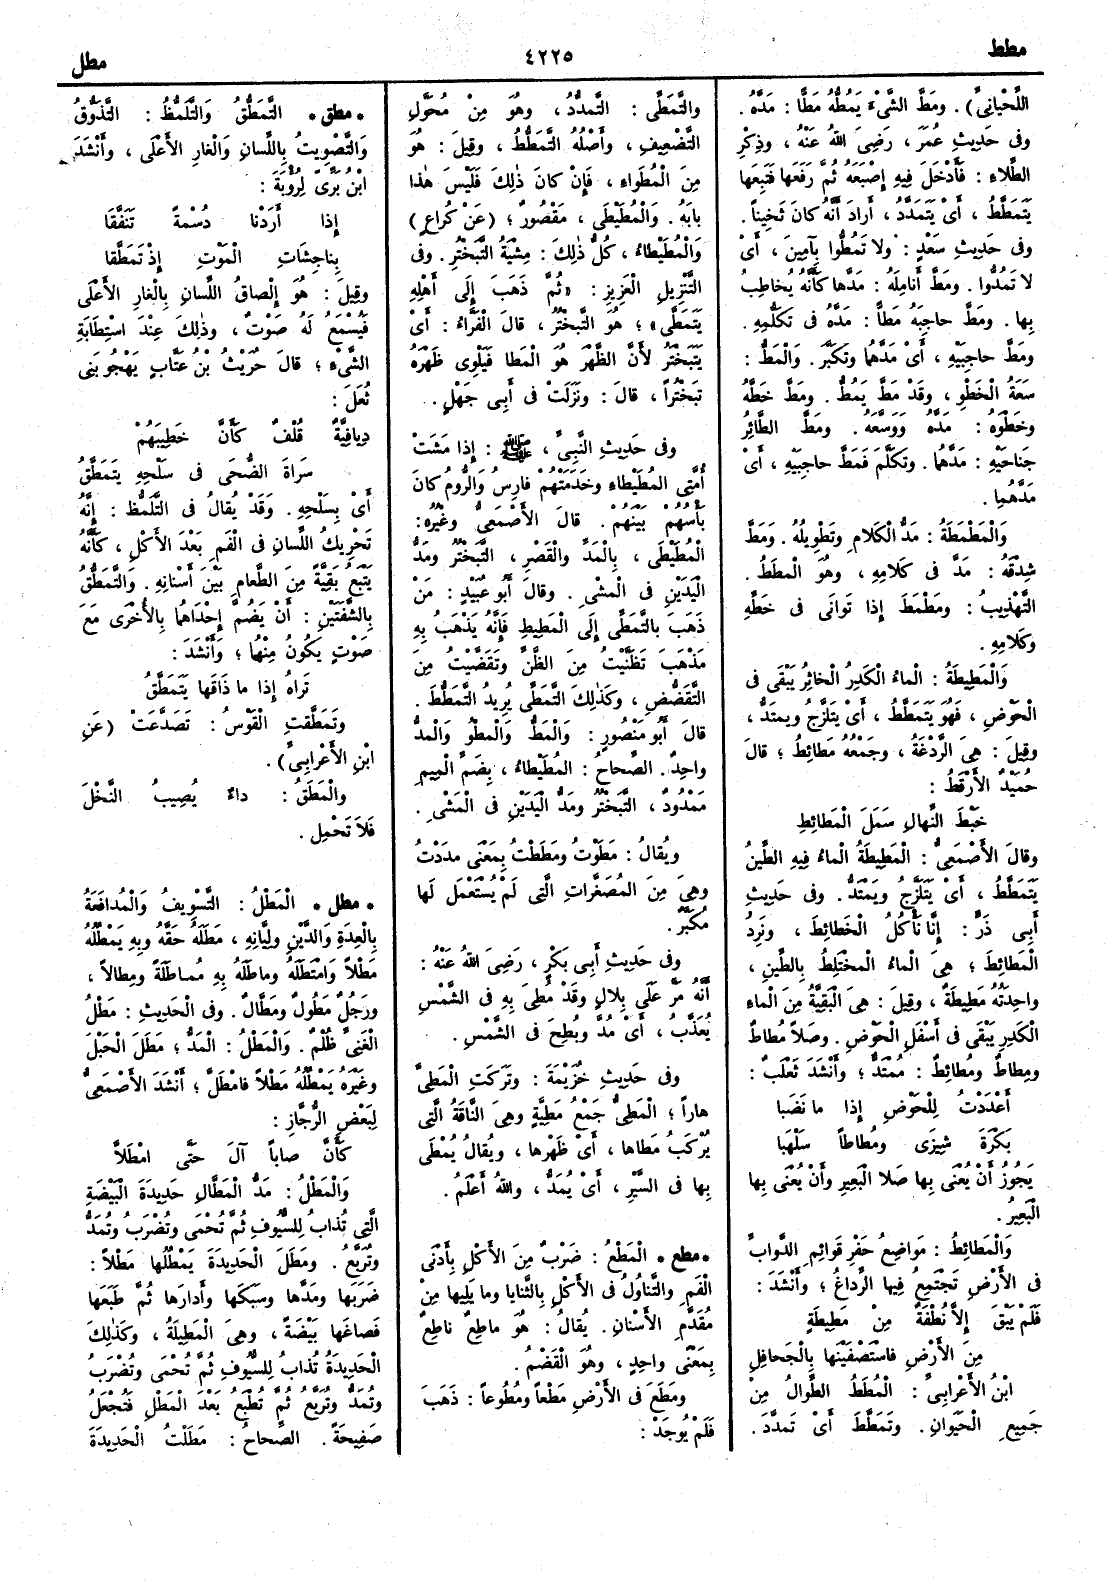 مطط
٤٢٢٥
مطل
اللِّحْيانِيِّ). وَمَطَّ الشَّيْءَ يَمُطُّهُ مَطًّا: مَدَّهُ.
وفى حَدِيثِ عُمَرَ، رَضِىَ اللهُ عَنْهُ، وذِكْرِ
الطِّلاءِ: فَأَدْخَلَ فِيهِ إِصْبَعَهُ ثُمَّ رَفَعَها فَتَبِعَها
يَتَمَطَّطُ، أَىْ يَتَمَدَّدُ، أَرادَ أَنَّهُ كانَ ثَخِيناً.
وفى حَدِيثِ سَعْدٍ: ولا تَمُطُّوا بِآمِينَ، أَىْ
لا تَمُدُّوا. ومَطَّ أَنامِلَهُ: مَدَّها كَأَنَّهُ يُخاطِبُ
بِها. ومَطَّ حاجِبَهُ مَطًّا: مَدَّهُ فى تَكَلُّمِهِ.
ومَطَّ حاجِبَيْهِ، أَىْ مَدَّهُما وتَكَبَّرَ. وَالْمَطُّ:
سَعَةُ الْخَطْوِ، وقَدْ مَطَّ يَمُطُّ. ومَطَّ خَطَّهُ
وخَطْوَهُ: مَدَّهُ وَوَسَّعَهُ. ومَطَّ الطَّائِرُ
جَناحَيْهِ: مَدَّهُما. وتَكَلَّمَ فَمَطَّ حاجِبَيْهِ، أَىْ
مَدَّهُما.
وَالْمَطْمَطَةُ: مَدُّ الْكَلامِ وتَطْوِيلُهُ. ومَطَّ
شِدْقَهُ: مَدَّ فى كَلامِهِ، وهُوَ الْمَطَطُ.
التَّهْذِيبُ: ومَطْمَطَ إِذا تَوانَى فى خَطِّهِ
وكَلامِهِ.
وَالْمَطِيطَةُ: الْماءُ الْكَدِرُ الْخاثِرُ يَبْقَى فى
الْحَوْضِ، فَهُوَ يَتَمَطَّطُ، أَىْ يَتَلَزَّجُ ويَمتَدُّ،
وقِيلَ: هِىَ الرَّدْغَةُ، وجَمْعُهُ مَطائِطُ؛ قالَ
حُمَيْدٌ الأَرْقَطُ:
خَبْطَ النِّهالِ سَمَلَ الْمَطائِطِ
وقالَ الأَصْمَعِىُّ: الْمَطِيطَةُ الْماءُ فِيهِ الطِّينُ
يَتَمَطَّطُ، أَىْ يَتَلَزَّجُ ويَمْتَدُّ. وفى حَدِيثِ
أَبِى ذَرٍّ: إِنَّا نَأْكُلُ الْخَطائِطَ، ونَرِدُ
الْمَطائِطَ؛ هِىَ الْماءُ الْمُخْتَلِطُ بِالطِّينِ،
واحِدَتُهُ مَطِيطَةٌ، وقِيلَ: هِىَ الْبَقِيَّةُ مِنَ الْماءِ
الْكَدِرِ يَبْقَى فى أَسْفَلِ الْحَوْضِ. وصَلاً مُطاطٌ
ومِطاطٌ ومُطائِطٌ: مُمْتَدٌّ؛ وأَنْشَدَ ثَعْلَبٌ:
أَعْدَدْتُ لِلْحَوْضِ إِذا ما نَضَبا
بَكْرَةَ شِيزَى ومُطاطاً سَلْهَبا
يَجُوزُ أَنْ يُعْنَى بِها صَلا الْبَعِيرِ وأَنْ يُعْنَى بِها
الْبَعِيرُ.
وَالْمَطائِطُ: مَواضِعُ حَفْرِ قَوائِمِ الدَّوابِّ
فى الأَرْضِ تَجْتَمِعُ فِيها الرِّداغُ؛ وأَنْشَدَ:
فَلَمْ يَبْقَ إِلاَّ نُطْفَةٌ مِنْ مَطِيطَةٍ
مِنَ الأَرْضِ فاسْتَصْفَيْنَها بِالْجَحافِلِ
ابْنُ الأَعْرابِىِّ: الْمُطُطُ الطِّوالُ مِنْ
جَمِيعِ الْحَيَوانِ. وتَمَطَّطَ أَىْ تَمَدَّدَ.
والتَّمَطِّى: التَّمَدُّدُ، وهُوَ مِنْ مُحَوَّلِ
التَّضْعِيفِ، وأَصْلُهُ التَّمَطُّطُ، وقِيلَ: هُوَ
مِنَ الْمُطَواءِ، فَإِنْ كانَ ذٰلِكَ فَلَيْسَ هٰذا
بابَهُ. وَالْمُطَيْطَى، مَقْصُورٌ؛ (عَنْ كُراعٍ)
وَالْمُطَيْطاءُ، كُلُّ ذٰلِكَ: مِشْيَةُ التَّبَخْتُرِ. وفى
التَّنْزِيلِ الْعَزِيزِ: «ثُمَّ ذَهَبَ إِلَى أَهْلِهِ
يَتَمَطَّى»؛ هُوَ التَّبَخْتُرُ، قالَ الْفَرَّاءُ: أَىْ
يَتَبَخْتَرُ لأَنَّ الظَّهْرَ هُوَ الْمَطا فَيَلْوِى ظَهْرَهُ
تَبَخْتُراً، قالَ: ونَزَلَتْ فى أَبِى جَهْلٍ.
وفى حَدِيثِ النَّبِىِّ، ﷺ: إِذا مَشَتْ
أُمَّتِى الْمُطَيْطاءَ وخَدَمَتْهُمْ فارِسُ والرُّومُ كانَ
بَأْسُهُمْ بَيْنَهُمْ. قالَ الأَصْمَعِىُّ وغَيْرُهُ:
الْمُطَيْطَى، بِالْمَدِّ والْقَصْرِ، التَّبَخْتُرُ ومَدُّ
الْيَدَيْنِ فى الْمَشْىِ. وقالَ أَبُو عُبَيْدٍ: مَنْ
ذَهَبَ بِالتَّمَطِّى إِلَى الْمَطِيطِ فَإِنَّهُ يَذْهَبُ بِهِ
مَذْهَبَ تَظَنَّيْتُ مِنَ الظَّنِّ وتَقَضَّيْتُ مِنَ
التَّقَضُّضِ، وكَذٰلِكَ التَّمَطِّى يُرِيدُ التَّمَطُّطَ.
قالَ أَبُو مَنْصُورٍ: وَالْمَطُّ وَالْمَطْوُ وَالْمَدُّ
واحِدٌ. الصّحاحُ: الْمُطَيْطاءُ، بِضَمِّ الْمِيمِ
مَمْدُودٌ، التَّبَخْتُرُ ومَدُّ الْيَدَيْنِ فى الْمَشْىِ.
ويُقالُ: مَطَوْتُ ومَطَطْتُ بِمَعْنَى مَدَدْتُ
وهِىَ مِنَ الْمُصَغَّراتِ الَّتِى لَمْ يُسْتَعْمَلْ لَها
مُكَبَّرٌ.
وفى حَدِيثِ أَبِى بَكْرٍ، رَضِىَ اللهُ عَنْهُ:
أَنَّهُ مَرَّ عَلَى بِلالٍ وقَدْ مُطِىَ بِهِ فى الشَّمْسِ
يُعَذَّبُ، أَىْ مُدَّ وبُطِحَ فى الشَّمْسِ.
وفى حَدِيثِ خُزَيْمَةَ: وتَرَكَتِ الْمَطِىَّ
هاراً؛ الْمَطِىُّ جَمْعُ مَطِيَّةٍ وهِىَ النَّاقَةُ الَّتِى
يُرْكَبُ مَطاها، أَىْ ظَهْرُها، ويُقالُ يُمْطَى
بِها فى السَّيْرِ، أَىْ يُمَدُّ، واللهُ أَعْلَمُ.
* مطع * الْمَطْعُ: ضَرْبٌ مِنَ الأَكْلِ بِأَدْنَى
الْفَمِ والتَّناوُلُ فى الأَكْلِ بِالثَّنايا وما يَلِيها مِنْ
مُقَدَّمِ الأَسْنانِ. يُقالُ: هُوَ ماطِعٌ ناطِعٌ
بِمَعْنًى واحِدٍ، وهُوَ الْقَضْمُ.
ومَطَعَ فى الأَرْضِ مَطْعاً ومُطُوعاً: ذَهَبَ
فَلَمْ يُوجَدْ:
* مطق * التَّمَطُّقُ وَالتَّلَمُّظُ: التَّذَوُّقُ
وَالتَّصْوِيتُ بِاللِّسانِ وَالْغارِ الأَعْلَى، وأَنْشَدَ
ابْنُ بَرِّىٍّ لِرُؤْبَةَ:
إِذا أَرَدْنا دُسْمَةً تَنَفَّقا
بِناجِشاتِ الْمَوْتِ إِذْ تَمَطَّقا
وقِيلَ: هُوَ إِلْصاقُ اللِّسانِ بِالْغارِ الأَعْلَى
فَيُسْمَعُ لَهُ صَوْتٌ، وذٰلِكَ عِنْدَ اسْتِطابَةِ
الشَّىْءِ؛ قالَ حُرَيْثُ بْنُ عَتَّابٍ يَهْجُو بَنِى
ثُعَلَ:
دِيافِيَّةٌ قُلْفٌ كَأَنَّ خَطِيبَهُمْ
سَراةَ الضُّحَى فى سَلْحِهِ يَتَمَطَّقُ
أَىْ بِسَلْحِهِ. وَقَدْ يُقالُ فى التَّلَمُّظِ: إِنَّهُ
تَحْرِيكُ اللِّسانِ فى الْفَمِ بَعْدَ الأَكْلِ، كَأَنَّهُ
يَتَّبِعُ بَقِيَّةً مِنَ الطَّعامِ بَيْنَ أَسْنانِهِ. وَالتَّمَطُّقُ
بِالشَّفَتَيْنِ: أَنْ يَضُمَّ إِحْداهُما بِالأُخْرَى مَعَ
صَوْتٍ يَكُونُ مِنْها؛ وَأَنْشَدَ:
تَراهُ إِذا ما ذاقَها يَتَمَطَّقُ
وتَمَطَّقَتِ الْقَوْسُ: تَصَدَّعَتْ (عَنِ
ابْنِ الأَعْرابِىِّ).
والْمَطَقُ: داءٌ يُصِيبُ النَّخْلَ
فَلاَ تَحْمِل.
* مطل * الْمَطْلُ: التَّسْوِيفُ وَالْمُدافَعَةُ
بِالْعِدَةِ وَالدَّيْنِ ولِيَّانِهِ، مَطَلَهُ حَقَّهُ وبِهِ يَمْطُلُهُ
مَطْلاً وَامْتَطَلَهُ وماطَلَهُ بِهِ مُماطَلَةً ومِطالاً،
ورَجُلٌ مَطُولٌ ومَطَّالٌ. وفى الْحَدِيثِ: مَطْلُ
الْغَنِىِّ ظُلْمٌ. وَالْمَطْلُ: الْمَدُّ؛ مَطَلَ الْحَبْلَ
وغَيْرَهُ يَمْطُلُهُ مَطْلاً فامْطَلَّ؛ أَنْشَدَ الأَصْمَعِىُّ
لِبَعْضِ الرُّجَّازِ:
كَأَنَّ صاباً آلَ حَتَّى امْطَلاَّ
وَالْمَطْلُ: مَدُّ الْمَطَّالِ حَدِيدَةَ الْبَيْضَةِ
الَّتِى تُذابُ لِلسُّيُوفِ ثُمَّ تُحْمَى وتُضْرَبُ وتُمَدُّ
وتُرَبَّعُ. ومَطَلَ الْحَدِيدَةَ يَمْطُلُها مَطْلاً:
ضَرَبَها ومَدَّها وسَبَكَها وأَدارَها ثُمَّ طَبَعَها
فَصاغَها بَيْضَةً، وهِىَ الْمَطِيلَةُ، وكَذٰلِكَ
الْحَدِيدَةُ تُذابُ لِلسُّيُوفِ ثُمَّ تُحْمَى وتُضْرَبُ
وتُمَدُّ وتُرَبَّعُ ثُمَّ تُطْبَعُ بَعْدَ الْمَطْلِ فَتُجْعَلُ
صَفِيحَةً. الصّحاحُ: مَطَلْتُ الْحَدِيدَةَ